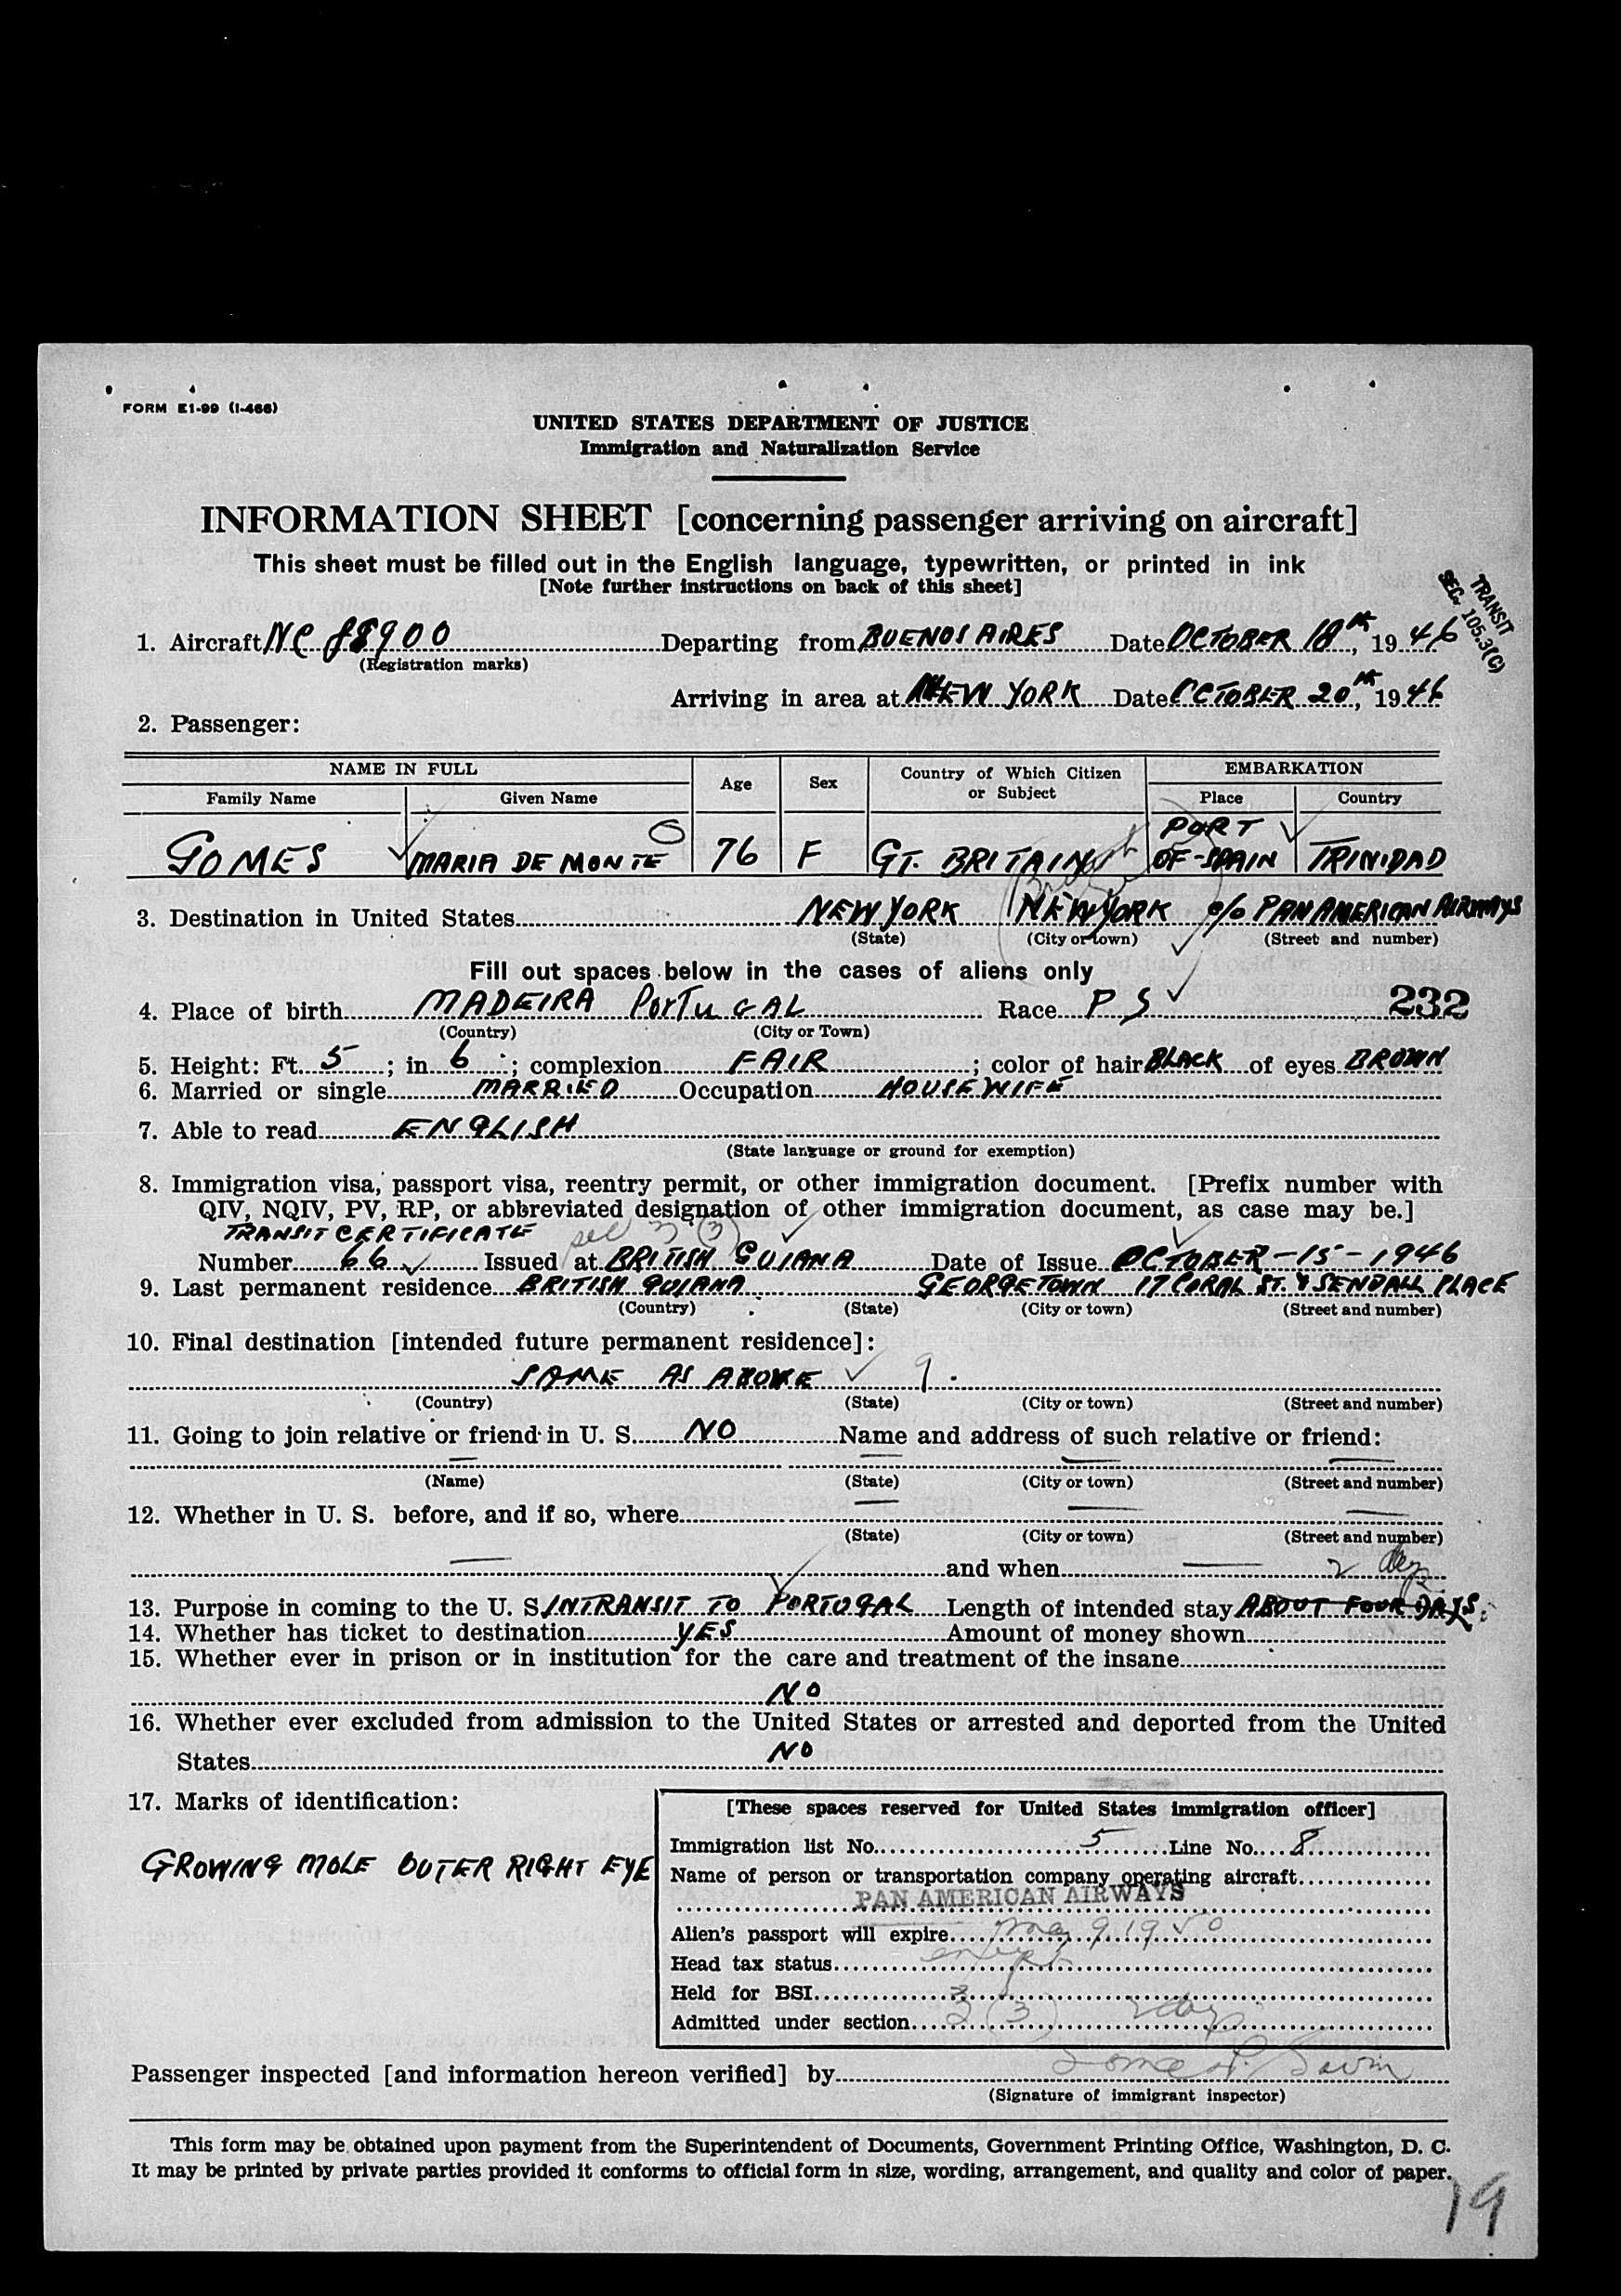 FORM E1-99 (I-466)
UNITED STATES DEPARTMENT OF JUSTICE
Immigration and Naturalization Service
INFORMATION SHEET [concerning passenger arriving on aircraft]
This sheet must be filled out in the English language, typewritten, or printed in ink
[Note further instructions on back of this sheet]
TRANSIT
SEC. 105.3(C)
1. Aircraft NC 88900 Departing from BUENOS AIRES Date OCTOBER 18th, 1946
(Registration marks)
Arriving in area at NEW YORK Date OCTOBER 20th, 1946
2. Passenger:
NAME IN FULL Age Sex Country of Which Citizen or Subject EMBARKATION
Family Name Given Name Place Country
GOMES MARIA DE MONTE 76 F GT. BRITAIN PORT OF-SPAIN TRINIDAD
3. Destination in United States NEW YORK NEW YORK c/o PAN AMERICAN AIRWAYS
(State) (City or town) (Street and number)
Fill out spaces below in the cases of aliens only
4. Place of birth MADEIRA PORTUGAL Race P S 232
(Country) (City or Town)
5. Height: Ft. 5; in 6; complexion FAIR; color of hair BLACK of eyes BROWN
6. Married or single MARRIED Occupation HOUSEWIFE
7. Able to read ENGLISH
(State language or ground for exemption)
8. Immigration visa, passport visa, reentry permit, or other immigration document. [Prefix number with
QIV, NQIV, PV, RP, or abbreviated designation of other immigration document, as case may be.]
TRANSIT CERTIFICATE sec 3 (3)
Number 66 Issued at BRITISH GUIANA Date of Issue OCTOBER-15-1946
9. Last permanent residence BRITISH GUIANA GEORGETOWN 17 CORAL ST. & SENDALL PLACE
(Country) (State) (City or town) (Street and number)
10. Final destination [intended future permanent residece]:
SAME AS ABOVE 9.
(Country) (State) (City or town) (Street and number)
11. Going to join relative or friend in U. S. NO Name and address of such relative or friend:
(Name) (State) (City or town) (Street and number)
12. Whether in U. S. before, and if so, where
(State) (City or town) (Street and number)
and when 2 days
13. Purpose in coming to the U. S. INTRANSIT TO PORTUGAL Length of intended stay ABOUT FOUR DAYS.
14. Whether has ticket to destination YES Amount of money shown
15. Whether ever in prison or in institution for the care and treatment of the insane
NO
16. Whether ever excluded from admission to the United States or arrested and deported from the United
States NO
17. Marks of identification:
GROWING MOLE OUTER RIGHT EYE
[These spaces reserved for United States immigration officer]
Immigration list No. 5 Line No. 8
Name of person or transportation company operating aircraft
PAN AMERICAN AIRWAYS
Alien's passport will expire May 9, 1950
Head tax status
Held for BSI
Admitted under section 3 (3) 2 days
Passenger inspected [and information hereon verified] by
(Signature of immigrant inspector)
This form may be obtained upon payment from the Superintendent of Documents, Government Printing Office, Washington, D. C.
It may be printed by private parties provided it conforms to official form in size, wording, arrangement, and quality and color of paper.
19